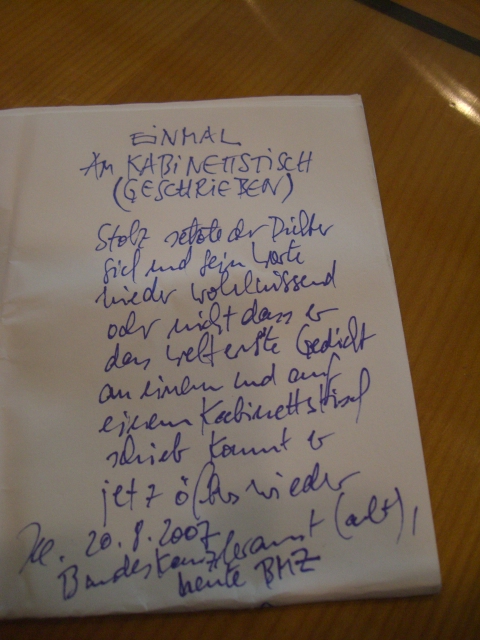 EINMAL
AM KABINETTSTISCH
(GESCHRIEBEN)
Stolz setzte der Dichter
sich und sein Worte
nieder wohlwissend
oder nicht dass er
das welterste Gedicht
an einem und auf
einem Kabinettstisch
schrieb kommt er
jetz öfters wieder
20.8.2007
Bundeskanzleramt (alt),
heute BMZ